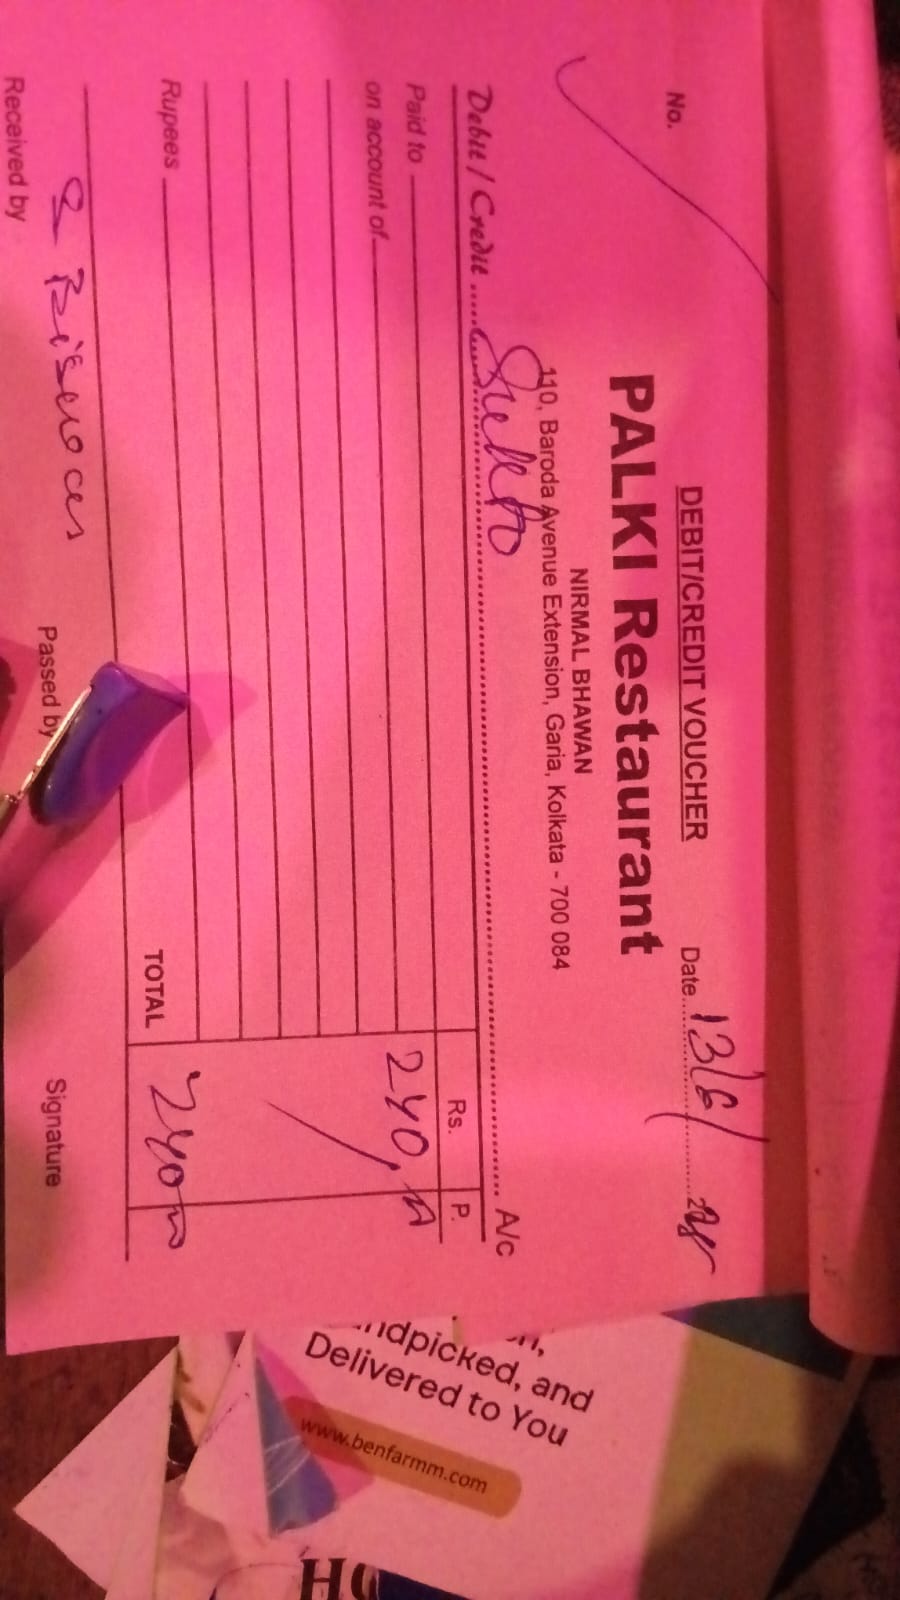 DEBIT/CREDIT VOUCHER
No. Date 13/6/
PALKI Restaurant
NIRMAL BHAWAN
110, Baroda Avenue Extension, Garia, Kolkata - 700 084
Debit / Credit A/c
Paid to Rs. P.
on account of 240,
Rupees TOTAL 240
Received by Passed by Signature
Delivered to You
www.benfarmm.com